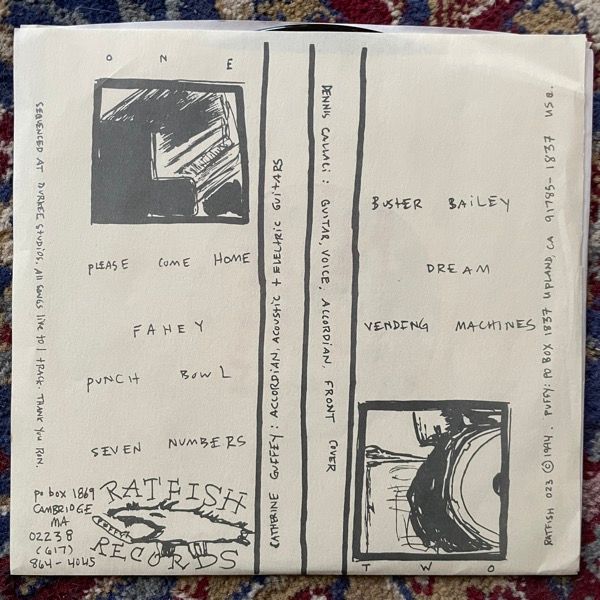 ONE
PLEASE COME HOME
FAHEY
PUNCH BOWL
SEVEN NUMBERS
SEQUENCED AT DUREEE STUDIOS. ALL SONGS LIVE TO 1 TRACK. THANK YOU RON.
PO BOX 1869
CAMBRIDGE
MA
02238
(617)
864-4045
RATFISH
RECORDS
CATHERINE GUFFEY: ACCORDIAN, ACOUSTIC + ELECTRIC GUITARS
DENNIS CALLACI: GUITAR, VOICE, ACCORDIAN, FRONT COVER
BUSTER BAILEY
DREAM
VENDING MACHINES
TWO
RATFISH 023 ©1994. PUFFY: PO BOX 1837 UPLAND, CA 91785-1837 USA.